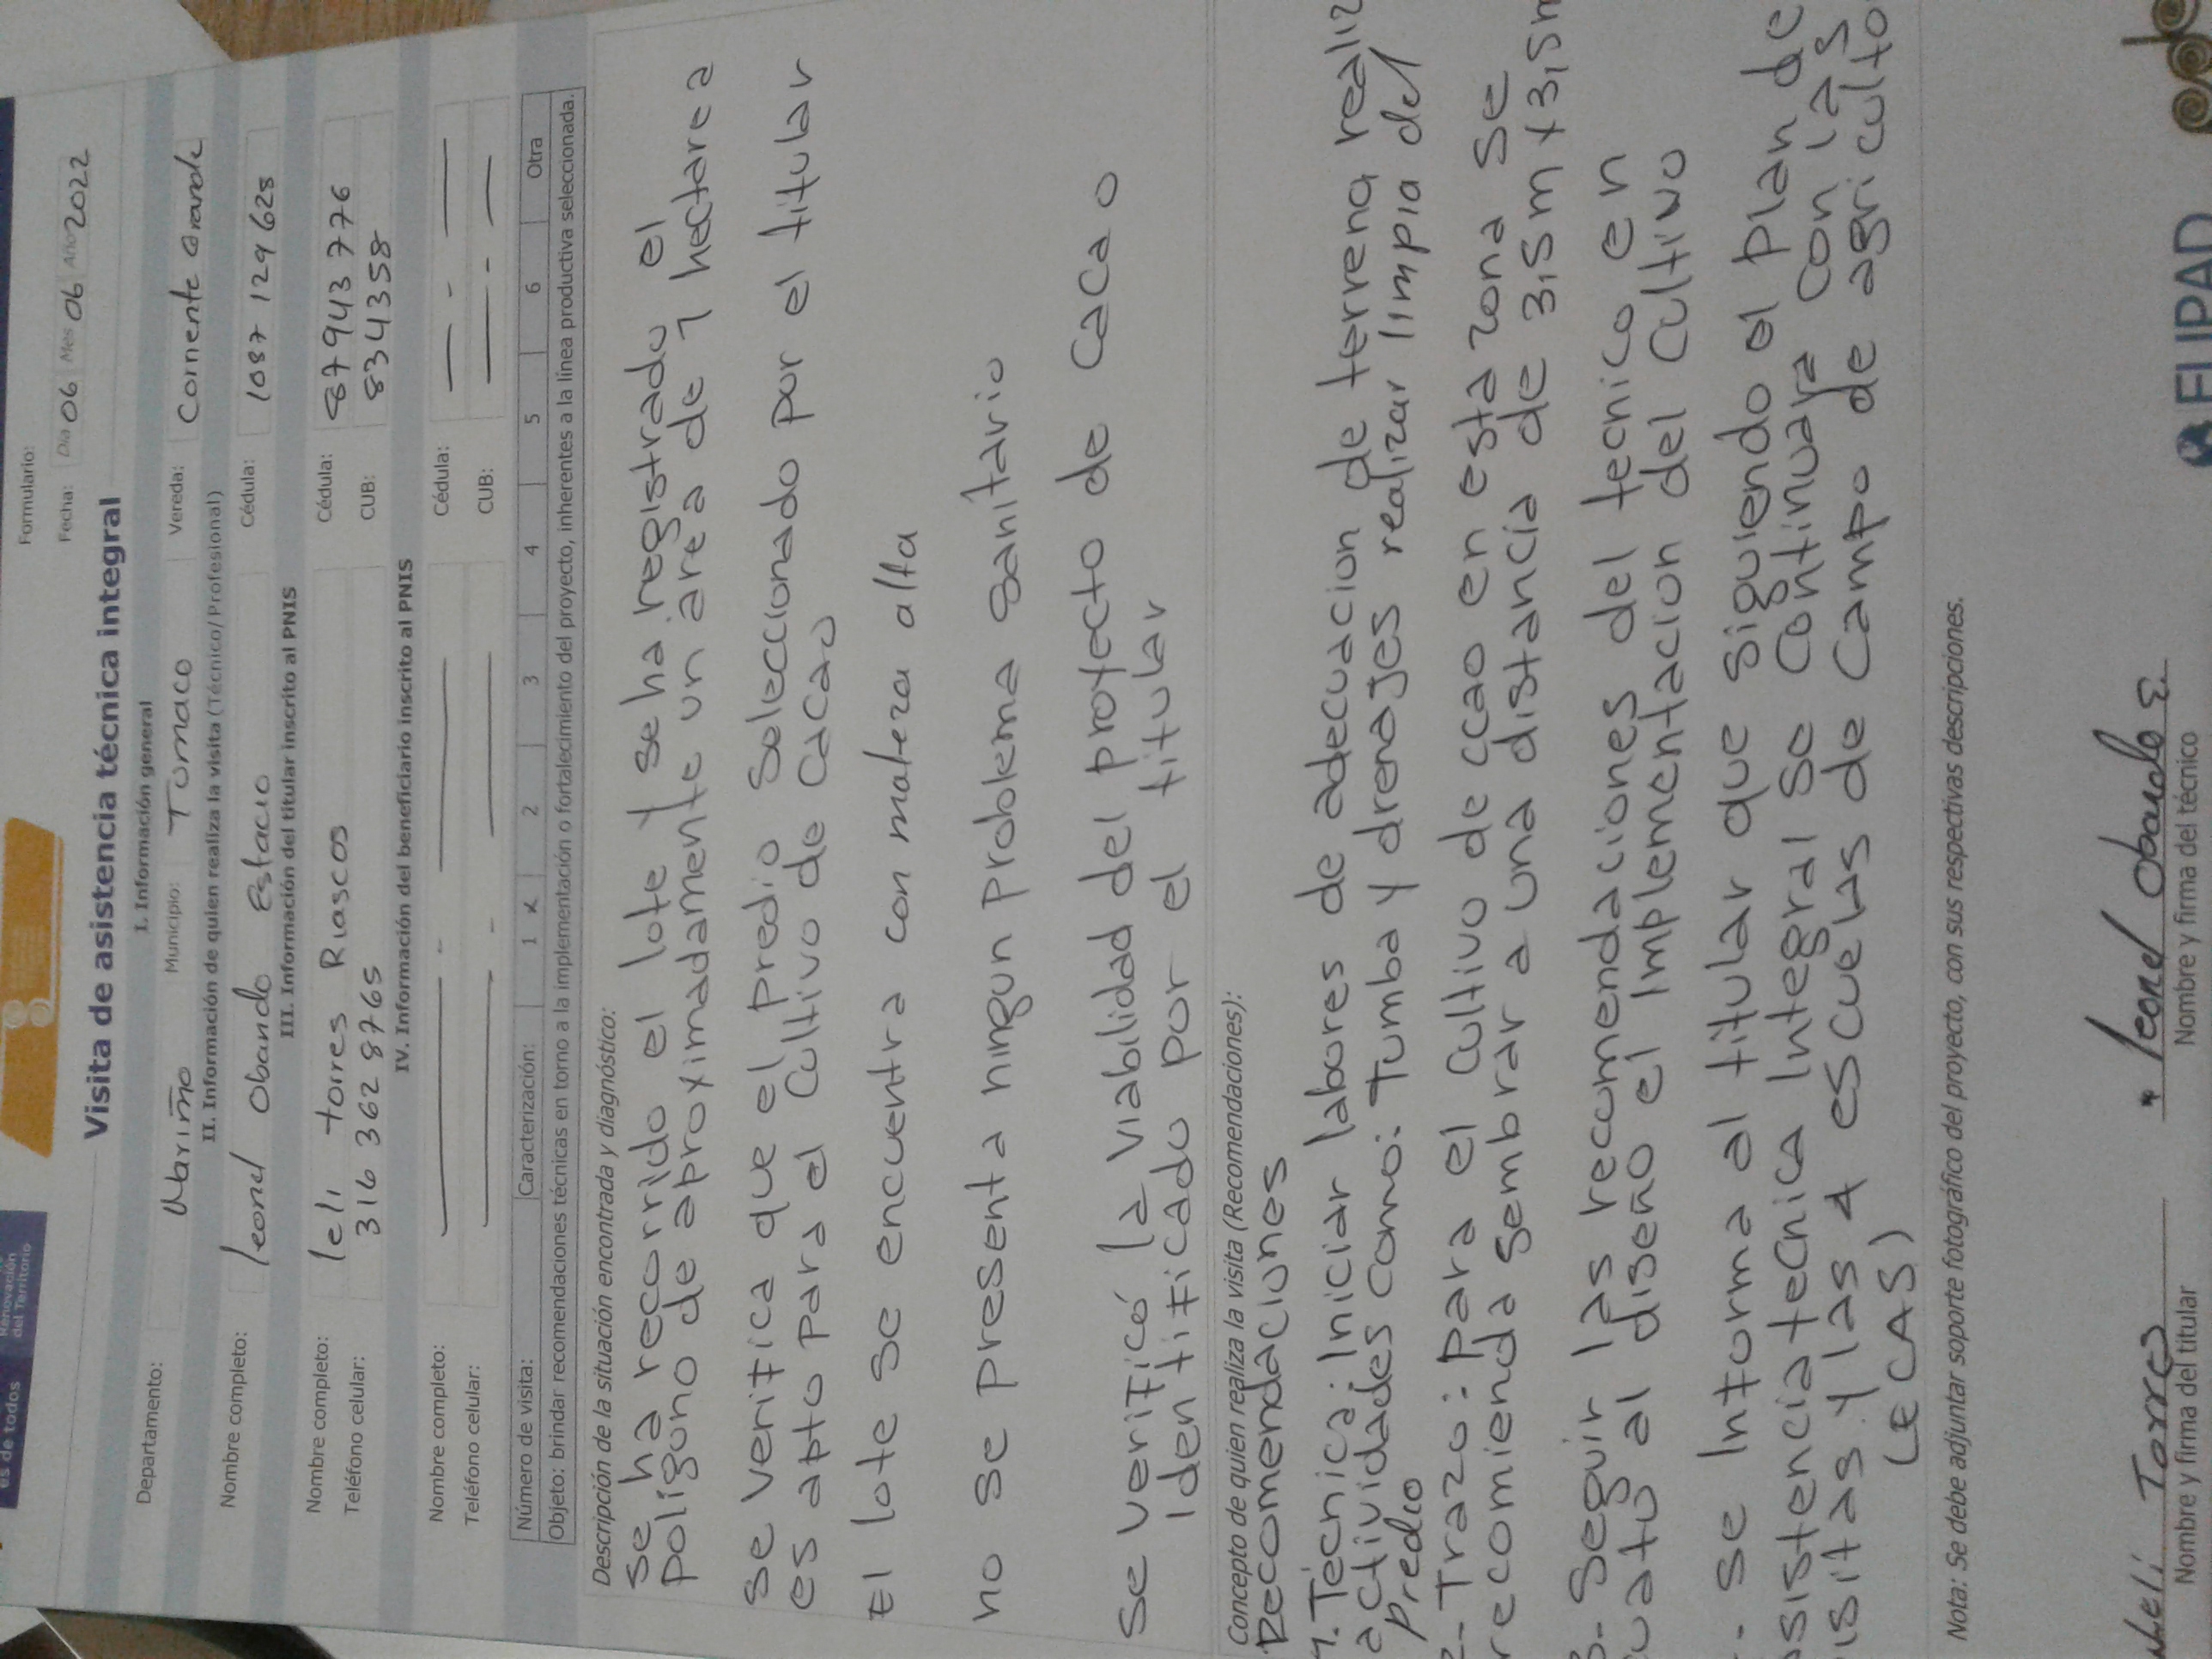 es de todos
Renovación
del Territorio
Formulario:
Fecha: Día 06 Mes 06 Año 2022
Visita de asistencia técnica integral
I. Información general
Departamento: Nariño Municipio: Tumaco Vereda: Corriente Grande
II. Información de quien realiza la visita (Técnico/Profesional)
Nombre completo: leonel Obando Estacio Cédula: 1087 129 628
III. Información del titular inscrito al PNIS
Nombre completo: leli torres Riascos Cédula: 87943776
Teléfono celular: 316 362 8765 CUB: 834358
IV. Información del beneficiario inscrito al PNIS
Nombre completo: Cédula:
Teléfono celular: CUB:
Número de visita: Caracterización: 1 x 2 3 4 5 6 Otra
Objeto: brindar recomendaciones técnicas en torno a la implementación o fortalecimiento del proyecto, inherentes a la línea productiva seleccionada.
Descripción de la situación encontrada y diagnóstico:
Se ha recorrido el lote y se ha registrado el
poligono de aproximadamente un area de 1 hectarea
Se verifica que el predio Seleccionado por el titular
es apto para el cultivo de cacao
El lote se encuentra con maleza alta
no se presenta ningun problema sanitario
Se verificó la viabilidad del proyecto de cacao
identificado por el titular
Concepto de quien realiza la visita (Recomendaciones):
Recomendaciones
1. Técnica: Iniciar labores de adecuacion de terreno realiz
actividades como: Tumba y drenajes realizar limpia del
predio
2- Trazo: para el cultivo de ccao en esta zona se
recomienda sembrar a una distancia de 3,5m x 3,5m
3- Seguir las recomendaciones del tecnico en
cuato al diseño e implementacion del cultivo
- se Informa al titular que siguiendo el plan de
asistencia tecnica Integral se continuara con las
visitas y las 4 escuelas de campo de agriculto
(ECAS)
Nota: Se debe adjuntar soporte fotográfico del proyecto, con sus respectivas descripciones.
leli Torres
Nombre y firma del titular
leonel Obando E.
Nombre y firma del técnico
FUPAD